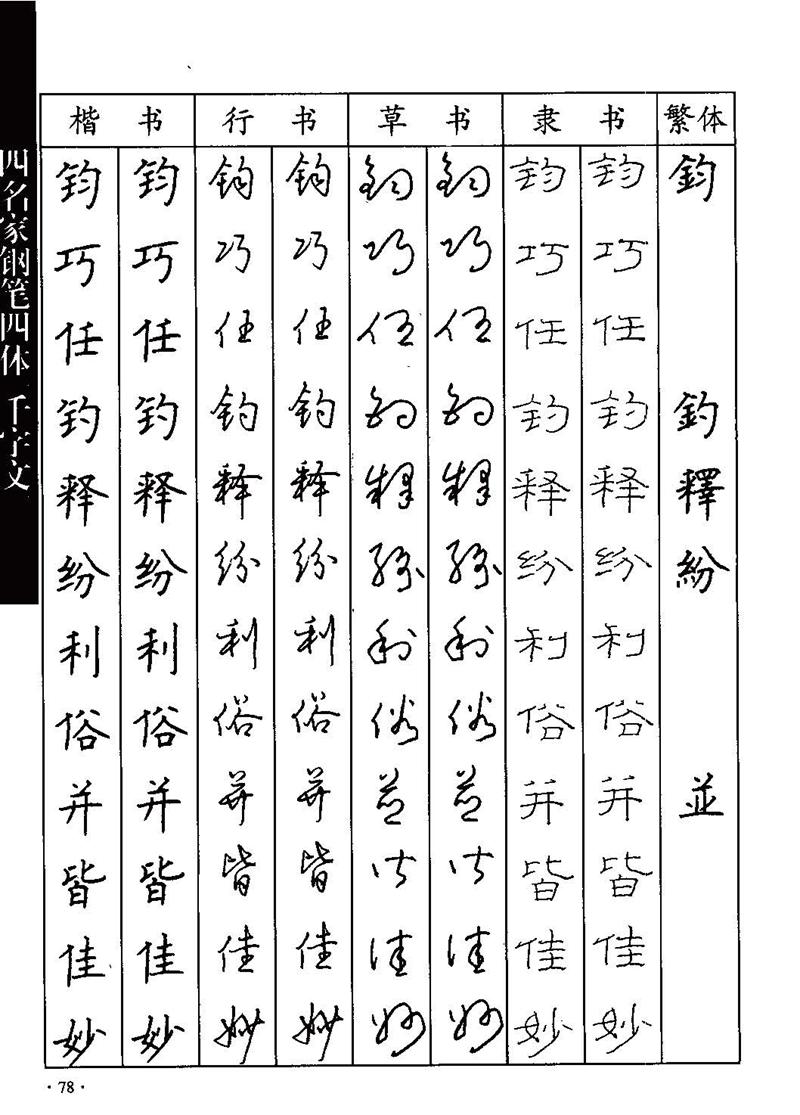 四名家钢笔四体 千字文
楷书 行书 草书 隶书 繁体
钧 钧 钧 钧 钧 钧 钧 钧 鈞
巧 巧 巧 巧 巧 巧 巧 巧
任 任 任 任 任 任 任 任
钓 钓 钓 钓 钓 钓 钓 钓 釣
释 释 释 释 释 释 释 释 釋
纷 纷 纷 纷 纷 纷 纷 纷 紛
利 利 利 利 利 利 利 利
俗 俗 俗 俗 俗 俗 俗 俗
并 并 并 并 并 并 并 并 並
皆 皆 皆 皆 皆 皆 皆 皆
佳 佳 佳 佳 佳 佳 佳 佳
妙 妙 妙 妙 妙 妙 妙 妙
·78·